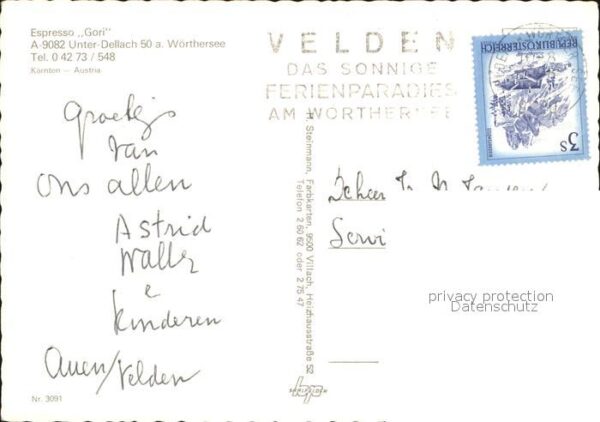 Espresso ,,Gori"
A-9082 Unter-Dellach 50 a. Wörthersee
Tel. 0 42 73 / 548
Kärnten — Austria
VELDEN
DAS SONNIGE
FERIENPARADIES
AM WÖRTHERSEE
REPUBLIK ÖSTERREICH
3S
Groetjes
van
ons allen
Astrid
Walter
e
kinderen
Auen/Velden
Nr. 3091
H. Steinmann, Farbkarten, 9500 Villach, Heizhausstraße 52
Telefon 2 60 62 oder 2 75 47
De heer
privacy protection
Datenschutz